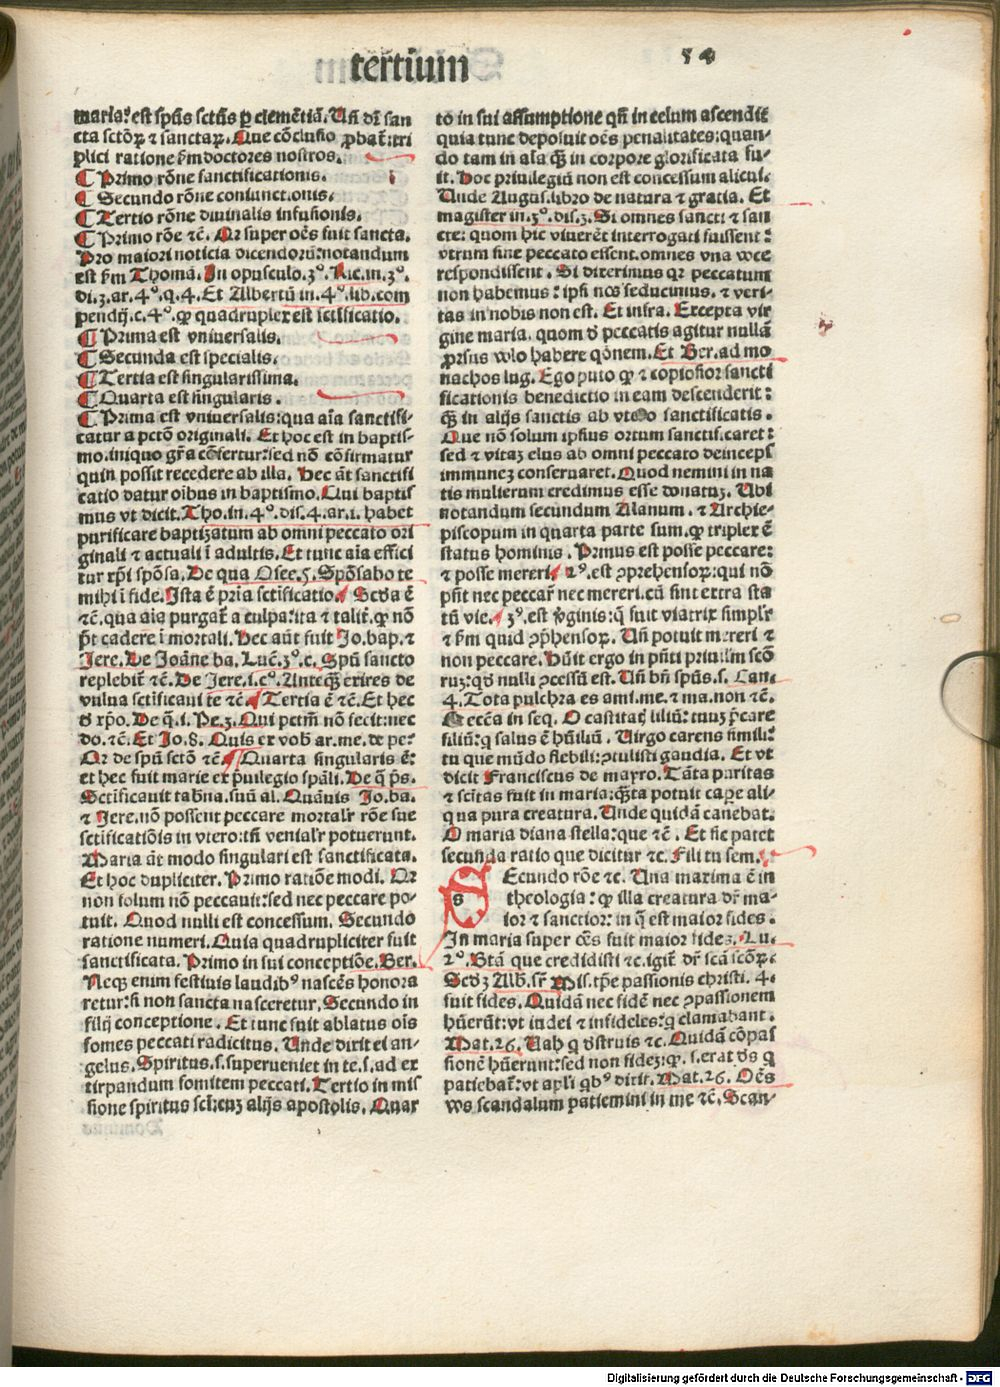 tertium
54
maria: est spūs sctūs ꝑ clemētiā. Uñ dī san
cta sctōꝝ ⁊ sanctaꝝ. Que cōclusio ꝓbat̄: tri
plici ratione ẜm doctores nostros.
¶ Primo rōne sanctificationis.
¶ Secundo rōne coniunctionis.
¶ Tertio rōne diuinalis infusionis.
¶ Primo rōe ⁊c̄. Qr super oēs fuit sancta.
Pro maiori noticia dicendorū: notandum
est ẜm Thomā. In opusculo. 3⁰. Ric. in. 3⁰.
di. 3. ar. 4⁰. q. 4. Et Albertū in. 4⁰. lib. com
pendij. c. 4⁰. ꝙ quadruplex est sctificatio.
¶ Prima est vniuersalis.
¶ Secunda est specialis.
¶ Tertia est singularissima.
¶ Quarta est singularis.
¶ Prima est vniuersalis: qua aīa sanctifi-
catur a pctō originali. Et hoc est in baptis-
mo. in quo gr̄a cōfertur: sed nō cōfirmatur
quin possit recedere ab illa. Hec āt sanctifi
catio datur oībus in baptismo. Qui baptis
mus vt dicit. Tho. in. 4⁰. dis. 4. ar. 1. habet
purificare baptizatum ab omni peccato ori
ginali ⁊ actuali ī adultis. Et tunc aīa effici
tur xp̄i spōsa. De qua Osee. 5. Spōsabo te
mihi ī fide. Ista ē prīa sctificatio. Scda ē
⁊c̄. qua aīa purgat̄ a culpa: ita ⁊ talit̄. ꝙ nō
pt̄ cadere ī mortali. Hec aūt fuit Jo. bap. ⁊
Jere. De Joāne ba. Luc̄. 3⁰. c. Spū sancto
replebit̄ ⁊c̄. De Jere. i. c⁰. Anteqꝫ exires de
vulua sctificaui te ⁊c̄. Tertia ē ⁊c̄. Et hec
ꝺ xp̄o. De q̄. i. Pe. 3. Qui pctm̄ nō fecit: nec
do. ⁊c̄. Et Jo. 8. Quis ex vob̄ ar. me. de pe?
Qr de spū sctō ⁊c̄. Quarta singularis ē:
et hec fuit marie ex p̄uilegio sp̄ali. De q̄ p̄s.
Sctificauit tab̄na. suū al. Quāuis Jo. ba.
⁊ Jere. nō possent peccare mortalr̄ rōe sue
sctificatiōis in vtero: tn̄ venialr̄ potuerunt.
Maria āt modo singulari est sanctificata.
Et hoc dupliciter. Primo ratiōe modi. Qr
non solum nō peccauit: sed nec peccare po-
tuit. Quod nulli est concessum. Secundo
ratione numeri. Quia quadrupliciter fuit
sanctificata. Primo in sui conceptiōe. Ber.
Neqꝫ enim festiuis laudibꝰ nascēs honora
retur: si non sancta nasceretur. Secundo in
filij conceptione. Et tunc fuit ablatus oīs
fomes peccati radicitus. Unde dixit ei an-
gelus. Spiritus. s. superueniet in te. s. ad ex
tirpandum fomitem peccati. Tertio in mis
sione spiritus sctī cuꝫ alijs apostolis. Quar
to in sui assumptione qn̄ in celum ascendit
quia tunc deposuit oēs penalitates: quan-
do tam in aīa qꝫ in corpore glorificata fu-
it. Hoc priuilegiū non est concessum alicui.
Unde Augus. libro de natura ⁊ gratia. Et
magister in. 3⁰. dis. 3. Si omnes sancti ⁊ san
cte: quom hic viuerēt interrogati fuissent:
vtrum sine peccato essent. omnes vna voce
respondissent. Si dixerimus qr peccatum
non habemus: ipsi nos seducimus. ⁊ veri-
tas in nobis non est. Et infra. Excepta vir
gine maria. quom ꝺ peccatis agitur nullā
ꝓrsus volo habere qōnem. Et Ber. ad mo
nachos lug. Ego puto ꝙ ⁊ copiosior sancti
ficationis benedictio in eam descenderit:
qꝫ in alijs sanctis ab vtero sanctificatis.
Que nō solum ipsius ortum sanctificaret:
sed ⁊ vitaꝫ eius ab omni peccato deinceps
immuneꝫ conseruaret. Quod nemini in na
tis mulierum credimus esse donatuꝫ. Ubi
notandum secundum Alanum. ⁊ Archie-
piscopum in quarta parte sum. ꝙ triplex ē
status hominis. Primus est posse peccare:
⁊ posse mereri. 2⁰. est ꝯprehensoꝝ: qui nō
pn̄t nec peccar̄ nec mereri. cū sint extra sta
tū vie. 3⁰. est v̄ginis: q̄ fuit viatrix simplr̄
⁊ ẜm quid ꝯp̄hensoꝝ. Uñ potuit mereri ⁊
non peccare. Hūit ergo in pn̄ti priuilm̄ scō
ruꝫ: qꝺ nulli ꝯcessū est. Uñ bn̄ spūs. s. Can.
4. Tota pulchra es ami. me. ⁊ ma. non ⁊c̄.
Ecc̄a in seq. O castitatis liliū: tuuꝫ p̄care
filiū: q̄ salus ē hūiliū. Virgo carens simili:
tu que mūdo flebili: ꝯtulisti gaudia. Et vt
dicit Franciscus de mayro. Tāta puritas
⁊ scītas fuit in maria: qꝫta potuit capere ali-
qua pura creatura. Unde quidā canebat.
O maria diana stella: que ⁊c̄. Et sic patet
secunda ratio que dicitur ⁊c. Fili tu sem.
Secundo rōe ⁊c. Una maxima ē in
theologia: ꝙ illa creatura dr̄ ma-
ior ⁊ sanctior: in q̄ est maior fides.
In maria super oēs fuit maior fides. Lu.
2⁰. Btā que credidisti ⁊c. igit̄ dr̄ scā scōꝝ.
Scdꝫ Alb. sr̄ Mis. tp̄e passionis christi. 4.
fuit fides. Quidā nec fidē nec ꝯpassionem
hūerūt: vt iudei ⁊ infideles: q̄ clamabant.
Mat. 26. Uah q ꝺstruis ⁊c. Quidā cōpas
sionē hūerunt: sed non fideꝫ: ꝙ. s. erat dꝰs q
patiebat̄: vt apl̄i qbꝰ dixit. Mat. 26. Oēs
vos scandalum patiemini in me ⁊c̄. Scan-
Digitalisierung gefördert durch die Deutsche Forschungsgemeinschaft - DFG